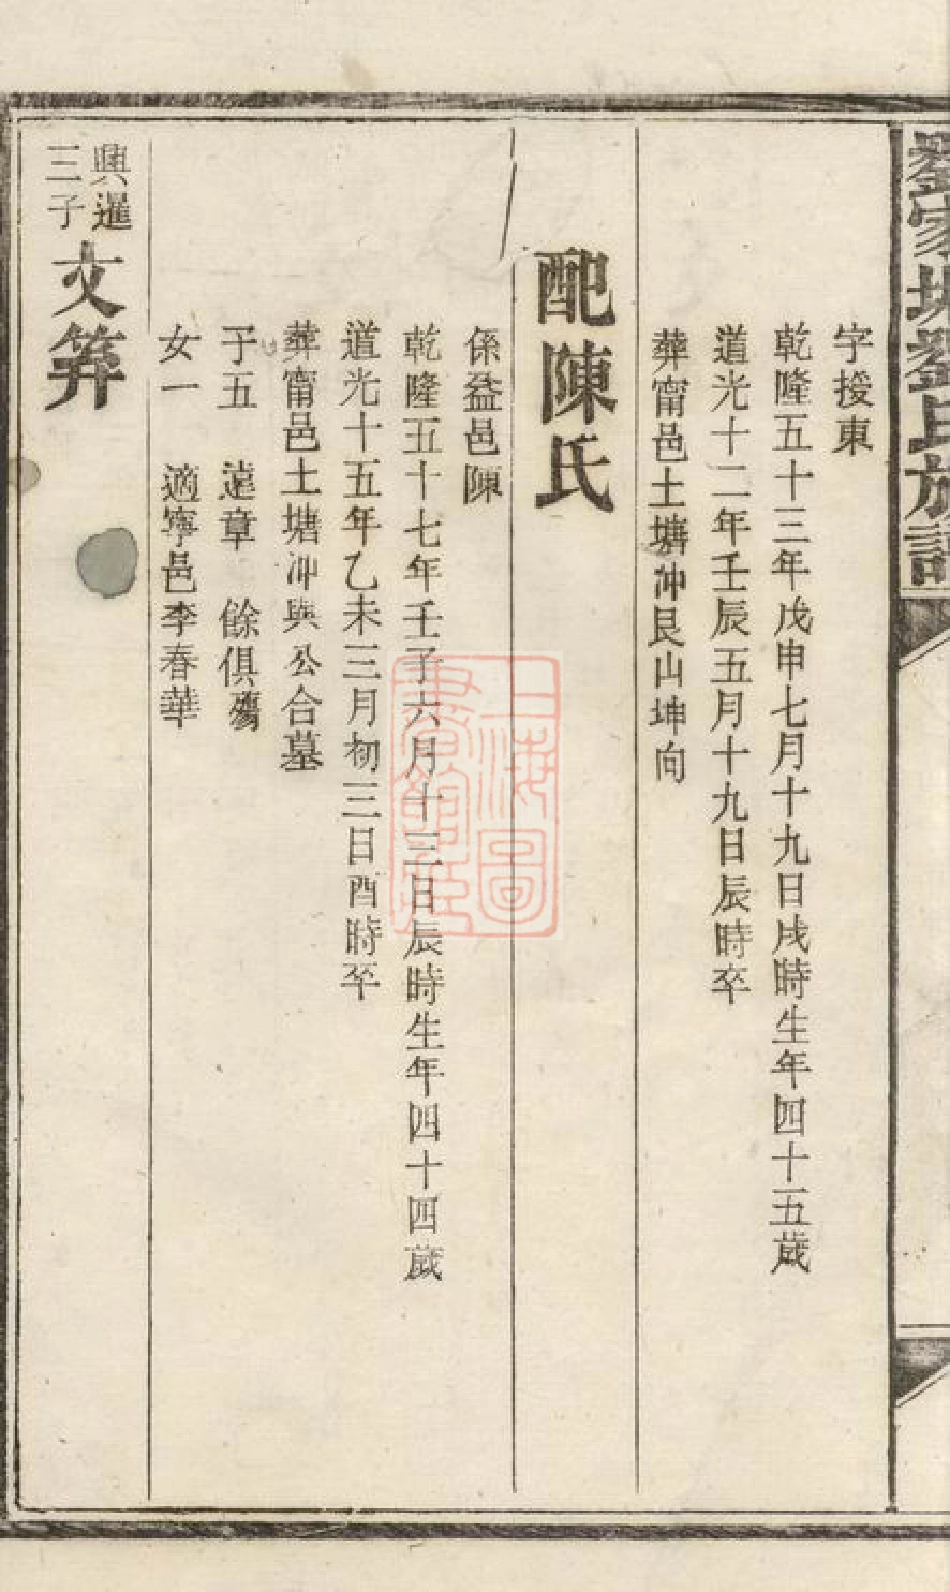 劉家塘劉氏族譜
字授東
乾隆五十三年戊申七月十九日戌時生年四十五歲
道光十二年壬辰五月十九日辰時卒
葬甯邑土塘冲艮山坤向
配陳氏
係益邑陳
乾隆五十七年壬子六月十三日辰時生年四十四歲
道光十五年乙未三月初三日酉時卒
葬甯邑土塘冲與公合墓
子五 遠章 餘俱殤
女一 適寧邑李春華
興暹
三子
文筭
上海圖
書館藏